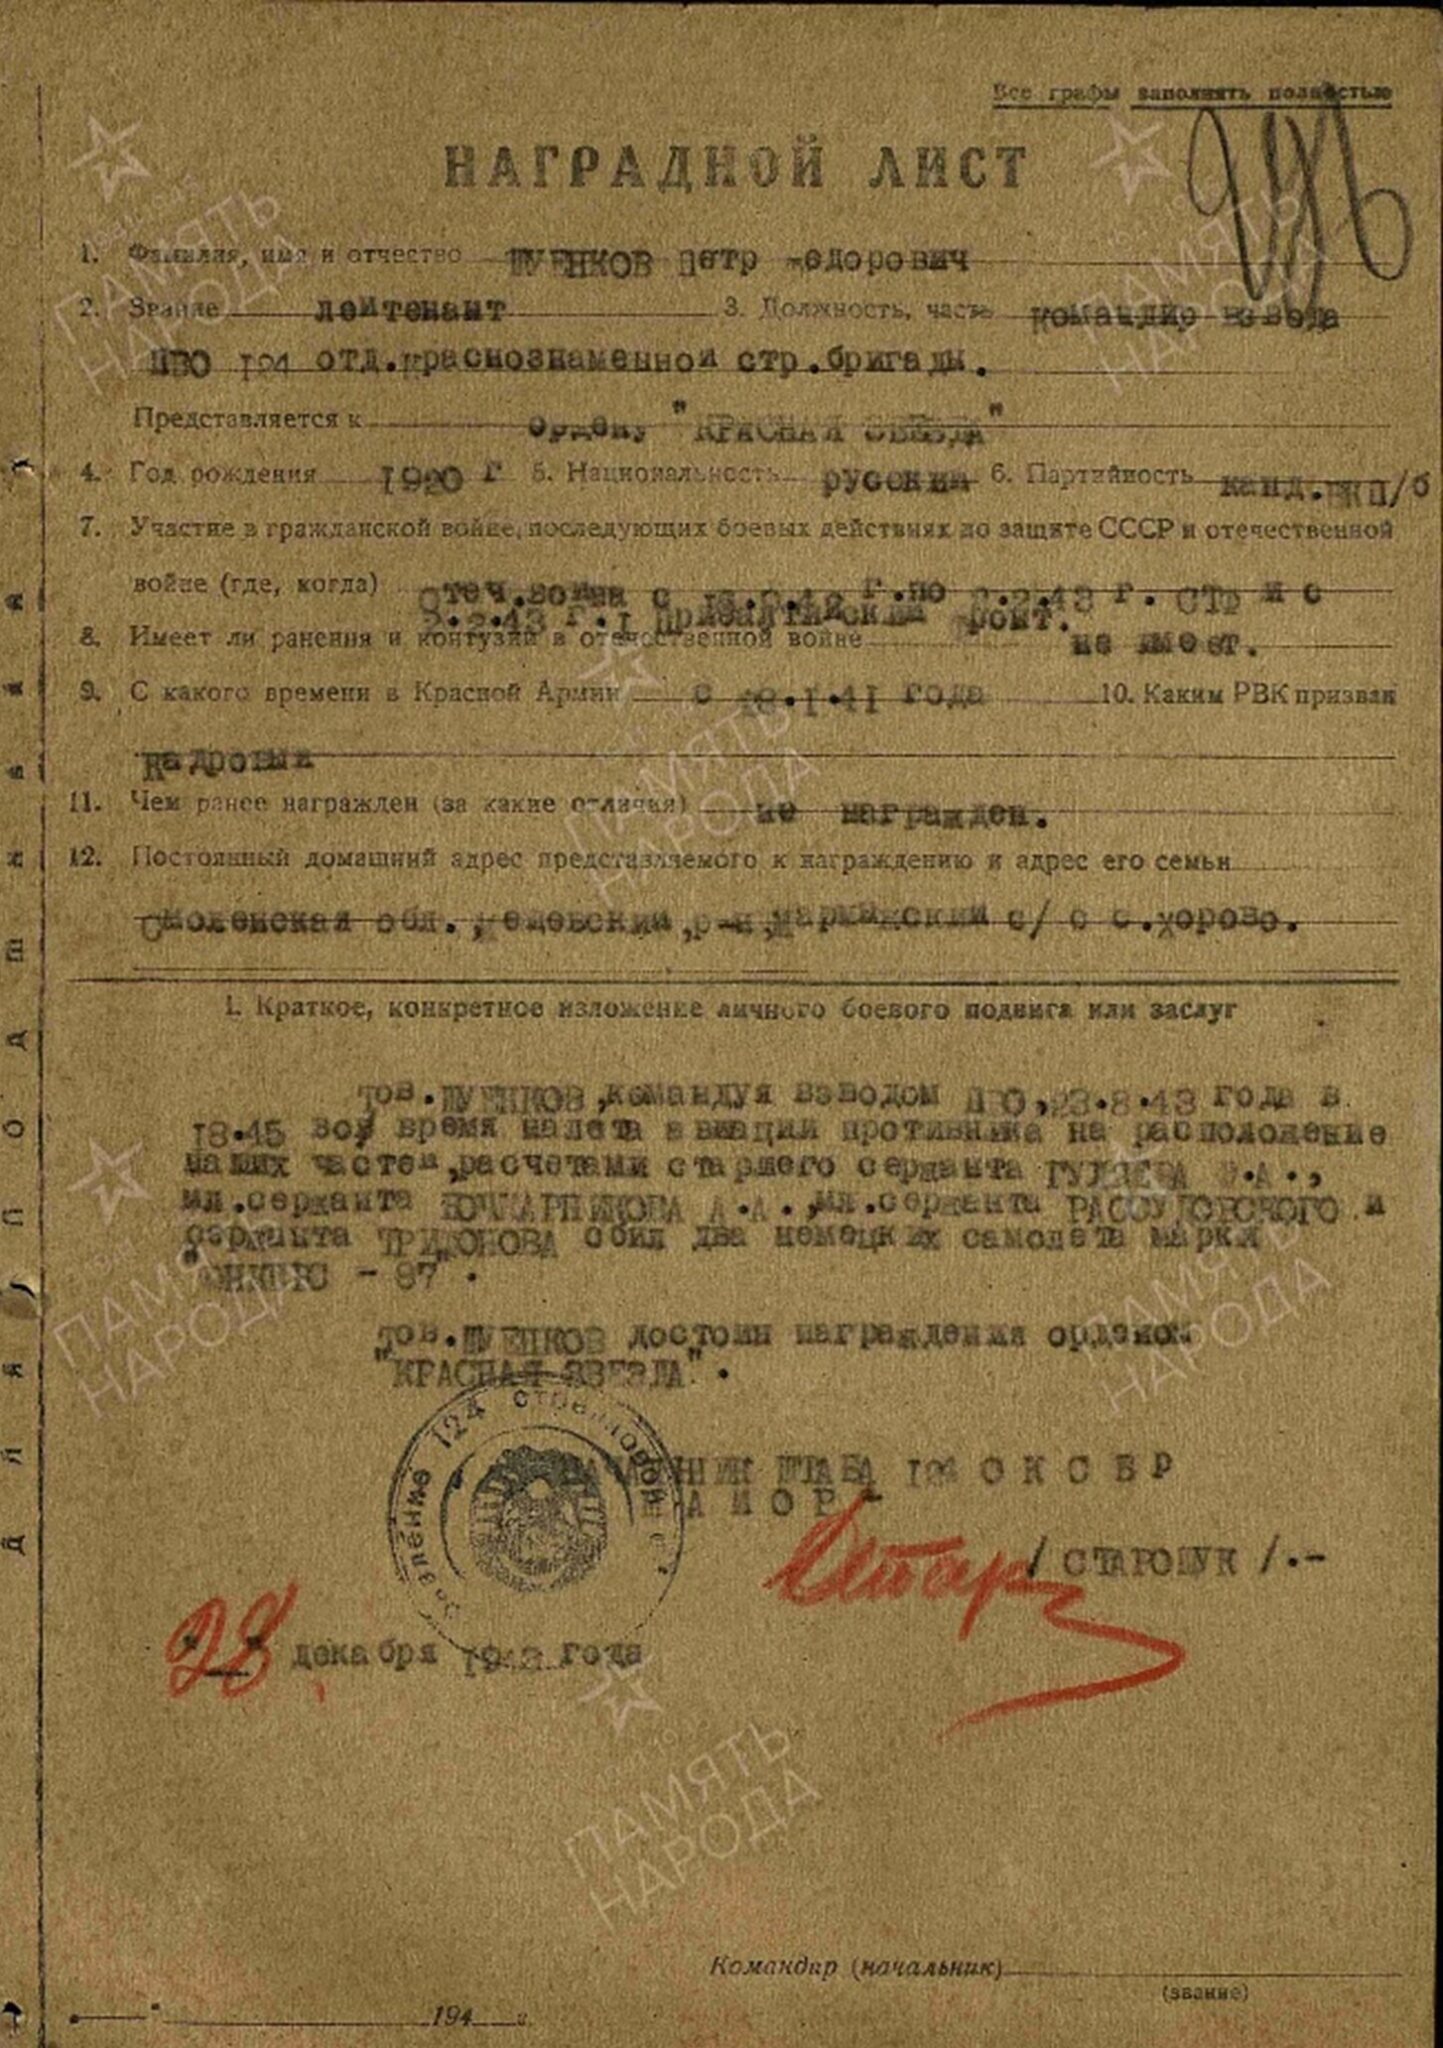 Все графы заполнять полностью
НАГРАДНОЙ ЛИСТ
1. Фамилия, имя и отчество ШУЕНКОВ Петр Федорович
2. Звание лейтенант 3. Должность, часть командир взвода
ПВО 124 отд.краснознаменной стр.бригады.
Представляется к ордену "КРАСНАЯ ЗВЕЗДА"
4. Год рождения 1920 г 5. Национальность русский 6. Партийность канд.ВКП/б
7. Участие в гражданской войне, последующих боевых действиях по защите СССР и отечественной
войне (где, когда) Отеч.война с г.по 2.2.43 г. СТФ и с
2.2.43 г. I Прибалтийский фронт.
8. Имеет ли ранения и контузии в отечественной войне не имеет.
9. С какого времени в Красной Армии с 18.1.41 года 10. Каким РВК призван
Кадровый
11. Чем ранее награжден (за какие отличия) не награжден.
12. Постоянный домашний адрес представляемого к награждению и адрес его семьи
Смоленская обл., р-н, с/с с.Хорово.
1. Краткое, конкретное изложение личного боевого подвига или заслуг
Тов.ШУЕНКОВ,командуя взводом ПВО,23.8.43 года в
18.45 во время налета авиации противника на расположение
наших частей,расчетами старшего сержанта ГУЛЯЕВА .А.,
мл.сержанта КОЧКАРНИКОВА А.А.,мл.сержанта РАССУДОВСКОГО и
сержанта ТРИФОНОВА сбил два немецких самолета марки
"ЮНКЕРС - 87".
Тов.ШУЕНКОВ достоин награждения орденом
"КРАСНАЯ ЗВЕЗДА".
124 стрелковой
НАЧАЛЬНИК ШТАБА 124 О К С Б Р
М А Й О Р -
Стар /СТАРОЩУК/.-
"28" декабря 1943 года
Командир (начальник)
(звание)
" " 194 г.
ПАМЯТЬ НАРОДА
ПАМЯТЬ НАРОДА
ПАМЯТЬ НАРОДА
ПАМЯТЬ НАРОДА
ПАМЯТЬ НАРОДА
ПАМЯТЬ НАРОДА